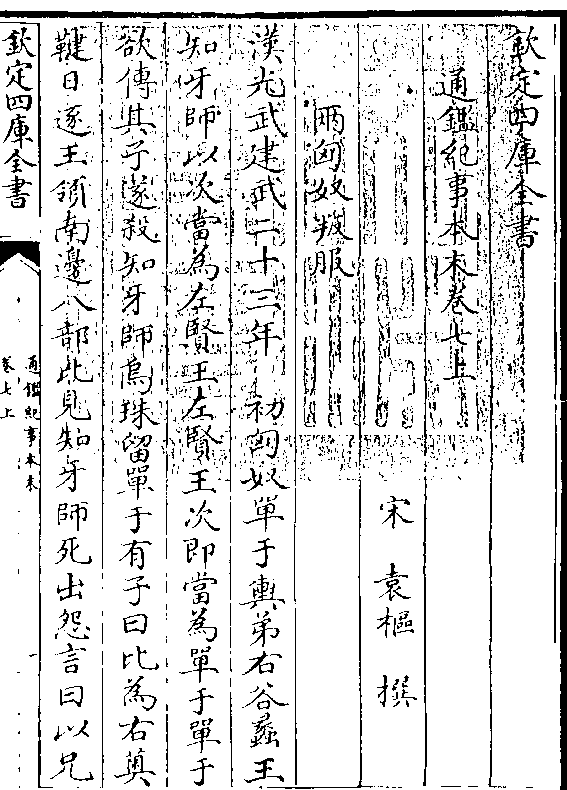 欽定四庫全書
通鑑紀事本末卷七上
宋 袁樞 撰
兩匈奴叛服
漢光武建武二十三年 初匈奴單于輿弟右谷蠡王
知牙師以次當為左賢王左賢王次即當為單于單于
欲傳其子遂殺知牙師烏珠留單于有子曰比為右薁
鞬日逐王領南邊八部比見知牙師死出怨言曰以兄
欽定四庫全書
通鑑紀事本末
卷七上
一